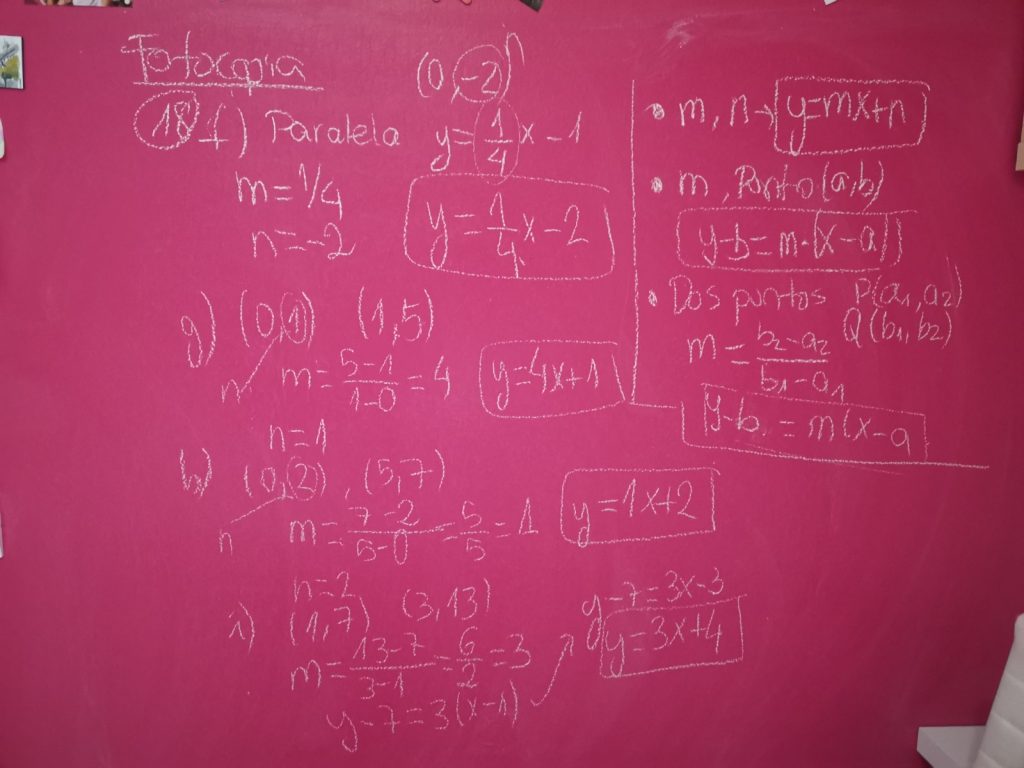 Fotocopia
(0,-2) n
18 f) Paralela y=1/4x-1
m=1/4
n=-2
y=1/4x-2
g) (0,1) (1,5)
n m=5-1/1-0=4 y=4x+1
n=1
h) (0,2), (5,7)
n m=7-2/5-0=5/5=1 y=1x+2
n=2
i) (1,7) (3,13)
m=13-7/3-1=6/2=3
y-7=3(x-1)
y-7=3x-3
y=3x+4
• m, n→ y=mx+n
• m, Punto(a,b)
y-b=m·(x-a)
• Dos puntos P(a1,a2)
Q(b1,b2)
m=b2-a2/b1-a1
y-b=m(x-a